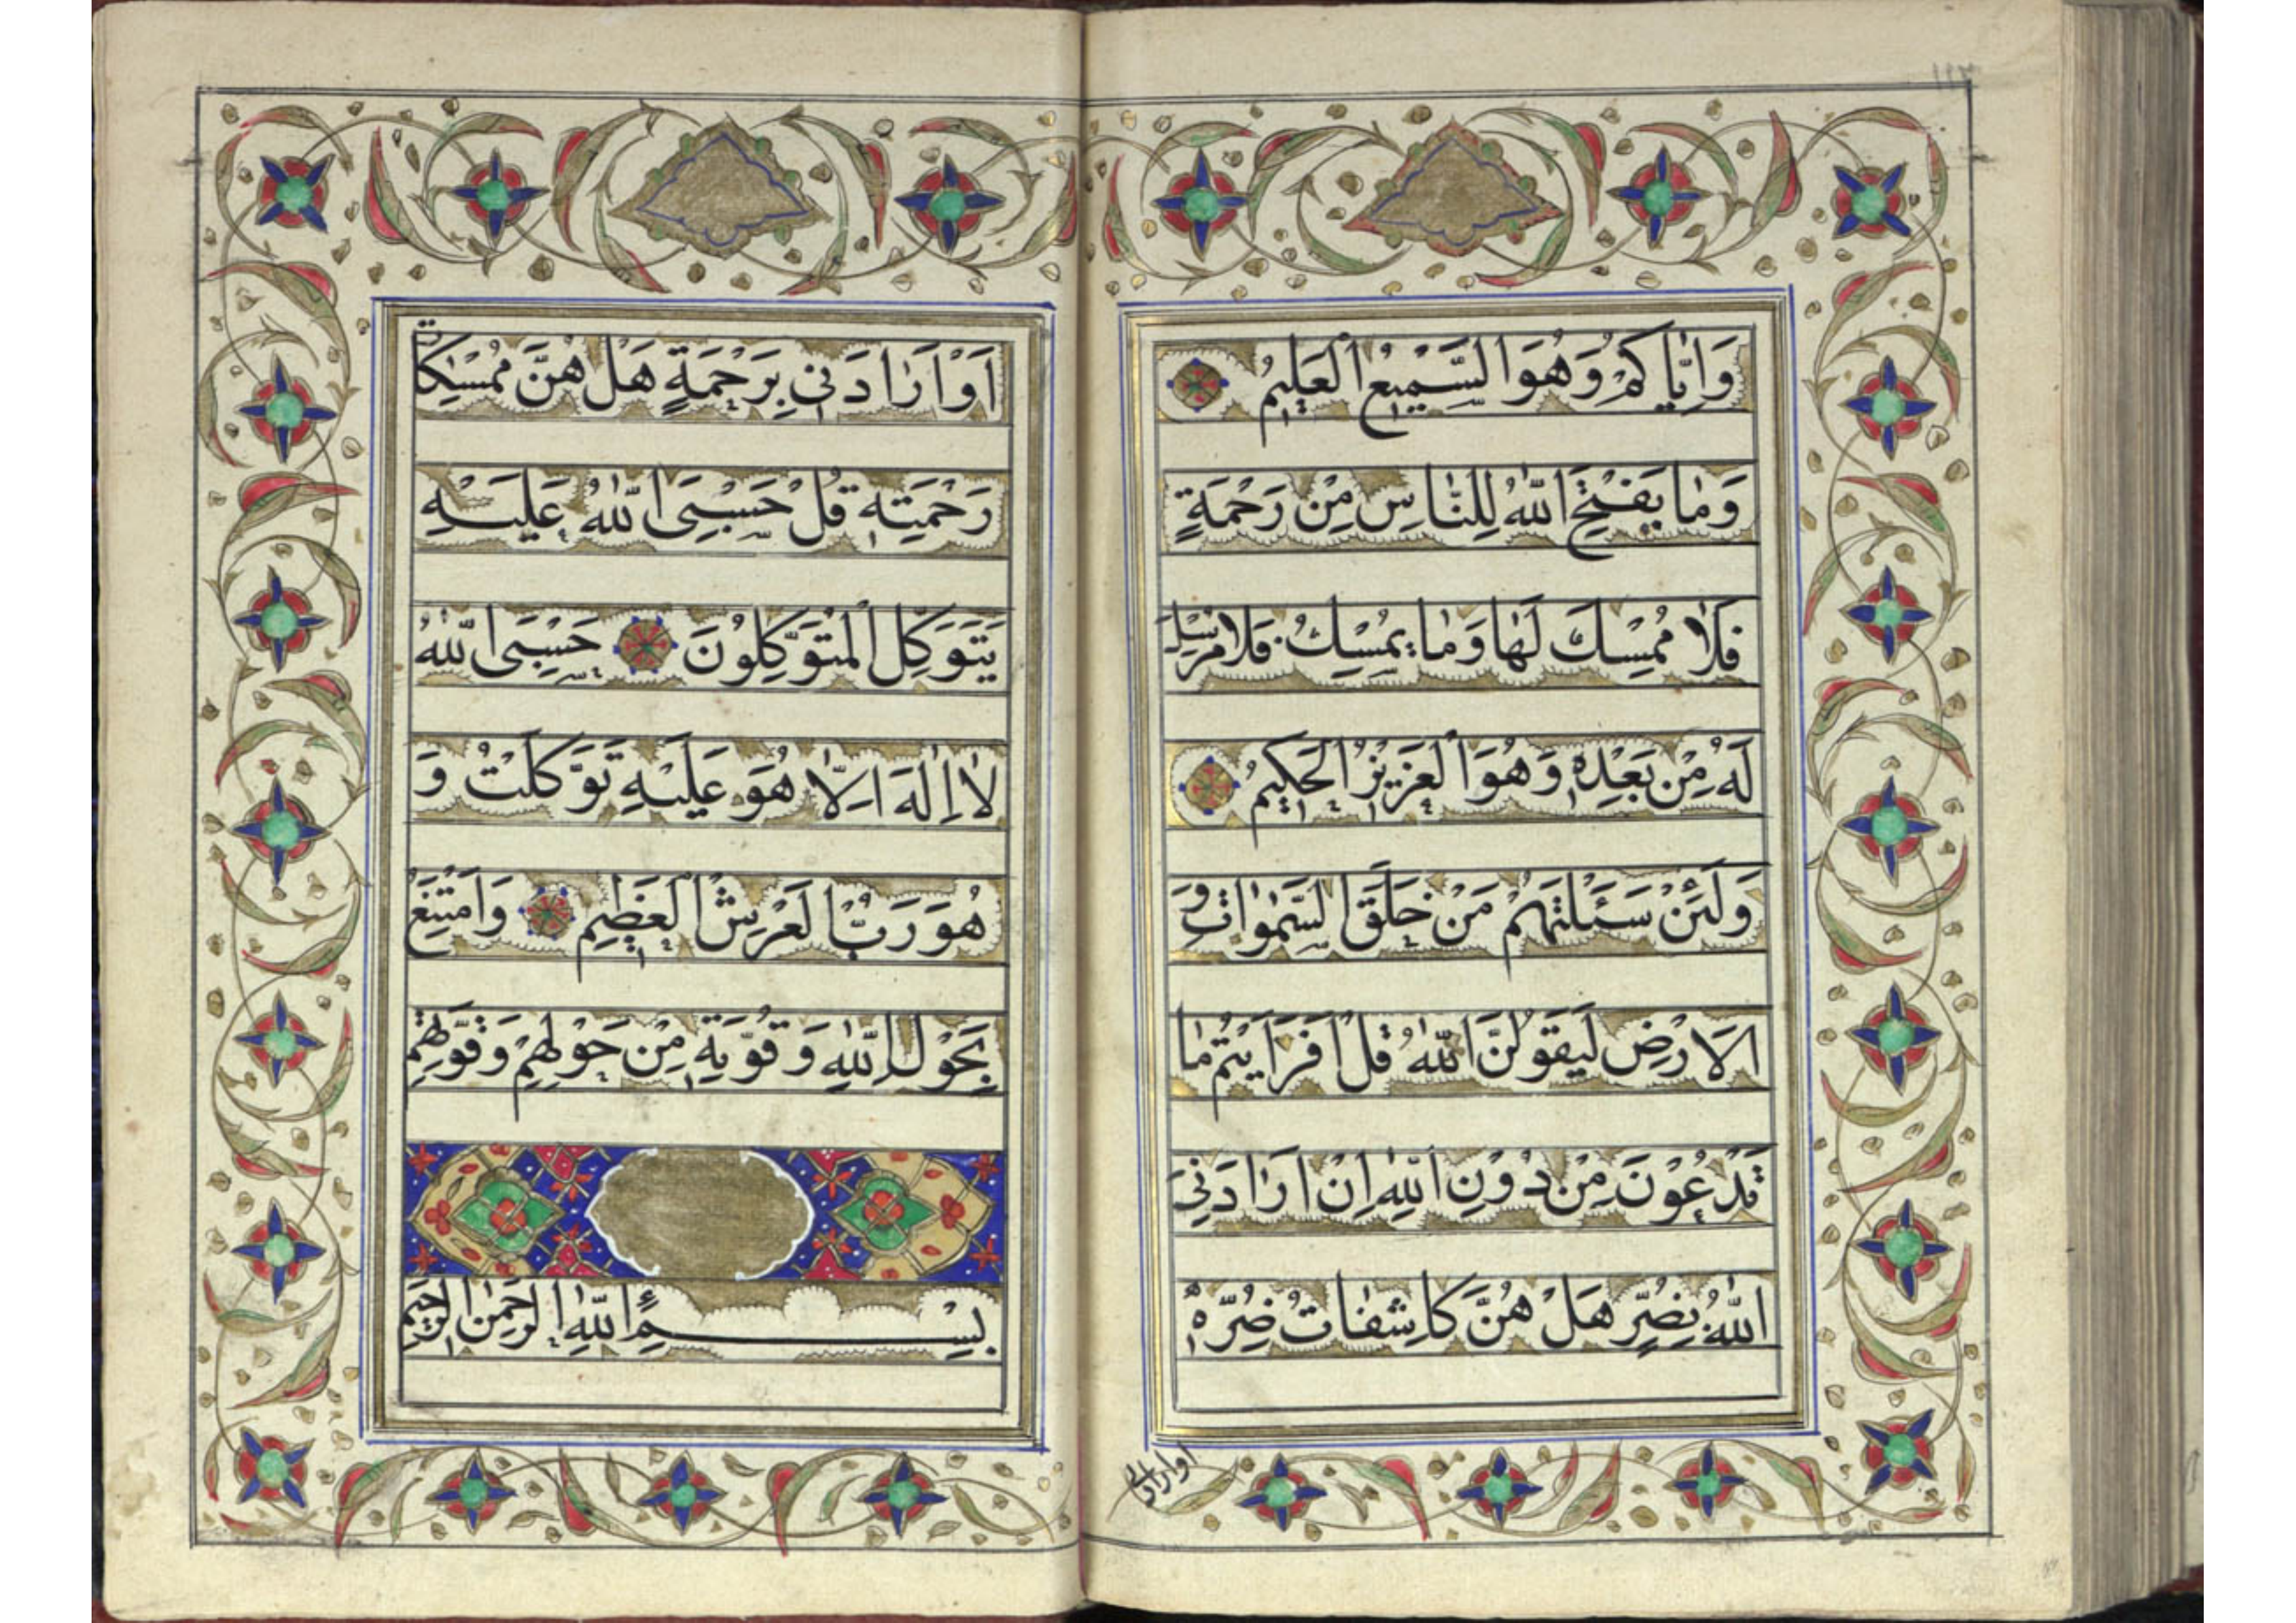 وَاِيّٰاكُمْ وَهُوَ السَّمِيْعُ الْعَلِيْمُ
وَمٰا يَفْتَحِ اللّٰهُ لِلنّٰاسِ مِنْ رَحْمَةٍ
فَلٰا مُمْسِكَ لَهٰا وَمٰا يُمْسِكُ فَلٰا مُرْسِلَ
لَهُ مِنْ بَعْدِهٖ وَهُوَ الْعَزِيْزُ الْحَكِيْمُ
وَلَئِنْ سَئَلْتَهُمْ مَنْ خَلَقَ السَّمٰوٰاتِ وَ
الْاَرْضِ لَيَقُوْلُنَّ اللّٰهُ قُلْ اَفَرَاَيْتُمْ مٰا
تَدْعُوْنَ مِنْ دُوْنِ اللّٰهِ اِنْ اَرٰادَنِيَ
اللّٰهُ بِضُرٍّ هَلْ هُنَّ كٰاشِفٰاتُ ضُرِّهٖ
اوارادنى
اَوْ اَرٰادَنِي بِرَحْمَةٍ هَلْ هُنَّ مُمْسِكٰاتُ
رَحْمَتِهٖ قُلْ حَسْبِيَ اللّٰهُ عَلَيْهِ
يَتَوَكَّلُ الْمُتَوَكِّلُوْنَ حَسْبِيَ اللّٰهُ
لٰا اِلٰهَ اِلّٰا هُوَ عَلَيْهِ تَوَكَّلْتُ وَ
هُوَ رَبُّ الْعَرْشِ الْعَظِيْمِ وَامْتَنِعْ
بِحَوْلِ اللّٰهِ وَقُوَّتِهٖ مِنْ حَوْلِهِمْ وَقُوَّتِهِمْ
بِسْمِ اللّٰهِ الرَّحْمٰنِ الرَّحِيْمِ